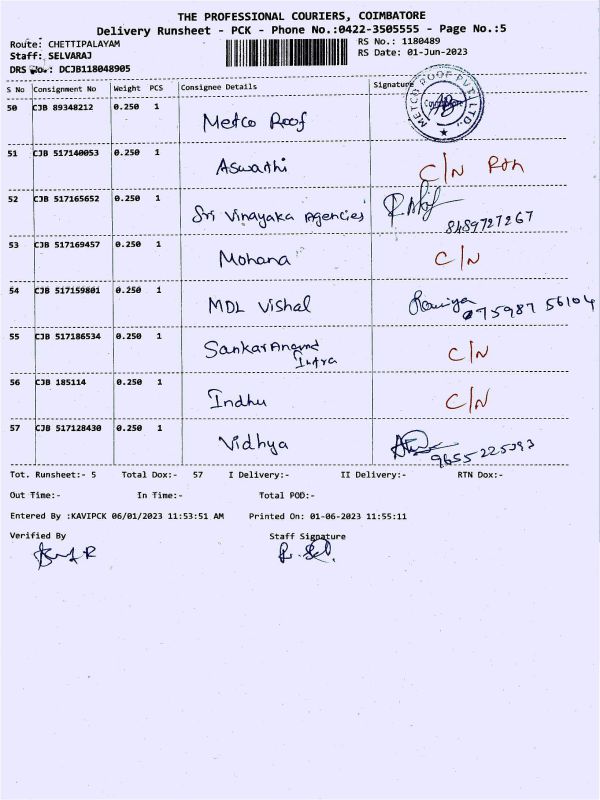 THE PROFESSIONAL COURIERS, COIMBATORE
Delivery Runsheet - PCK - Phone No.:0422-3505555 - Page No.:5
Route: CHETTIPALAYAM RS No.: 1180489
Staff: SELVARAJ RS Date: 01-Jun-2023
DRS No.: DCJB118048905
S No Consignment No Weight PCS Consignee Details Signature
50 CJB 89348212 0.250 1 Metco Roof METCO ROOF PVT. LTD. Coimbatore
51 CJB 517140053 0.250 1 Aswathi C/N Rtn
52 CJB 517165652 0.250 1 Sri Vinayaka Agencies 8489727267
53 CJB 517169457 0.250 1 Mohana C/N
54 CJB 517159801 0.250 1 MDL Vishal Ramiya 75987 56104
55 CJB 517186534 0.250 1 Sankar Anand Infra C/N
56 CJB 185114 0.250 1 Indhu C/N
57 CJB 517128430 0.250 1 Vidhya 9655225393
Tot. Runsheet:- 5 Total Dox:- 57 I Delivery:- II Delivery:- RTN Dox:-
Out Time:- In Time:- Total POD:-
Entered By :KAVIPCK 06/01/2023 11:53:51 AM Printed On: 01-06-2023 11:55:11
Verified By Staff Signature